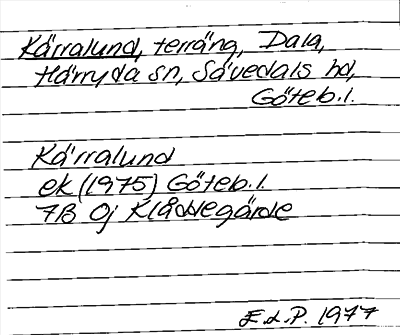 Kärralund, terräng, Dala,
Härryda sn, Sävedals hd,
Göteb.l.
Kärralund
ek (1975) Göteb.l.
7B 0j Klåddegärde
E.L.P. 1977